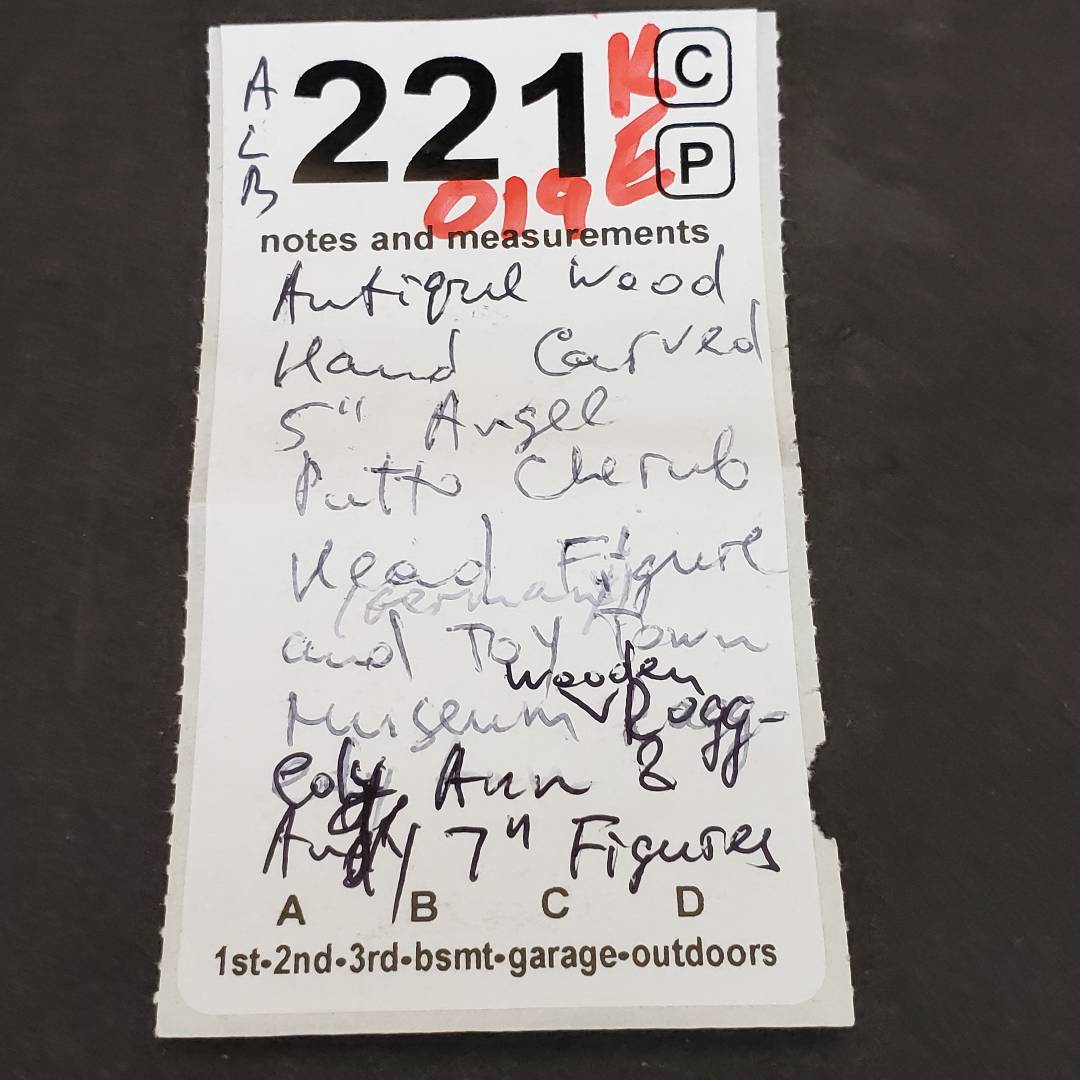 A
L
B
221
K
E
C
P
019
notes and measurements
Antique Wood
Hand Carved
5" Angel
Putto Cherub
Head Figure
(Germany)
and Toy Town
wooden
Museum Ragg-
edy Ann &
Andy 7" Figures
A B C D
1st•2nd•3rd•bsmt•garage•outdoors